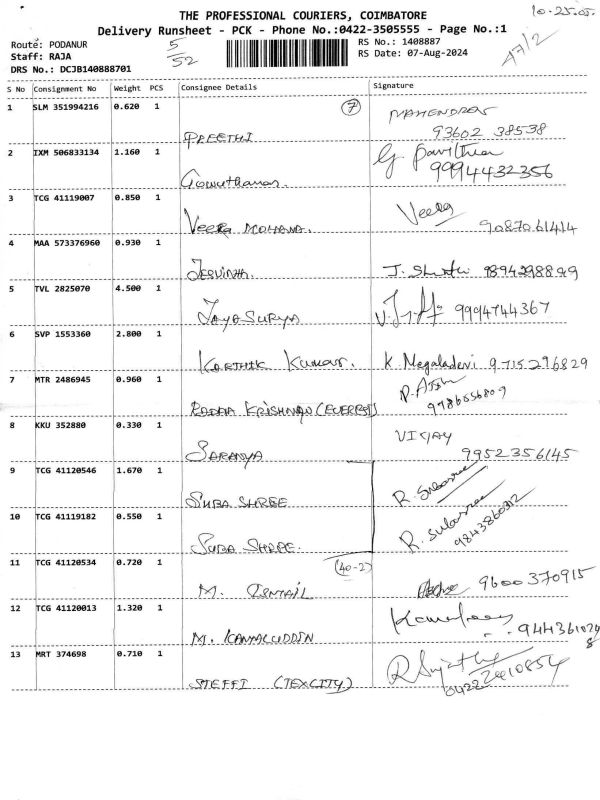 THE PROFESSIONAL COURIERS, COIMBATORE
10-25.05.
Delivery Runsheet - PCK - Phone No.:0422-3505555 - Page No.:1
Route: PODANUR 5/52 RS No.: 1408887 A7/2
Staff: RAJA RS Date: 07-Aug-2024
DRS No.: DCJB140888701
S No Consignment No Weight PCS Consignee Details Signature
1 SLM 351994216 0.620 1 PREETHI 7 MAHENDRAN 93602 38538
2 IXM 506833134 1.160 1 Gowuthaman. 9994432356
3 TCG 41119007 0.850 1 Veera MOHANA. Veera 9087061414
4 MAA 573376960 0.930 1 9894298899
5 TVL 2825070 4.500 1 JAYASURYA 9994744367
6 SVP 1553360 2.800 1 KARTHIK Kumar. K. Megaladevi 9715296829
7 MTR 2486945 0.960 1 RADHA KRISHNAN (EVEREST) 9786556809
8 KKU 352880 0.330 1 SARANYA VIJAY 9952356145
9 TCG 41120546 1.670 1 SUBA SHREE R. Subasree
10 TCG 41119182 0.550 1 SUBA SHREE. R. Subasree 9843860312
11 TCG 41120534 0.720 1 M. ISMAIL (40-2) 9600370915
12 TCG 41120013 1.320 1 M. KAMALUDDIN 9443610248
13 MRT 374698 0.710 1 STEFFI (TEXCITY) R Sujatha